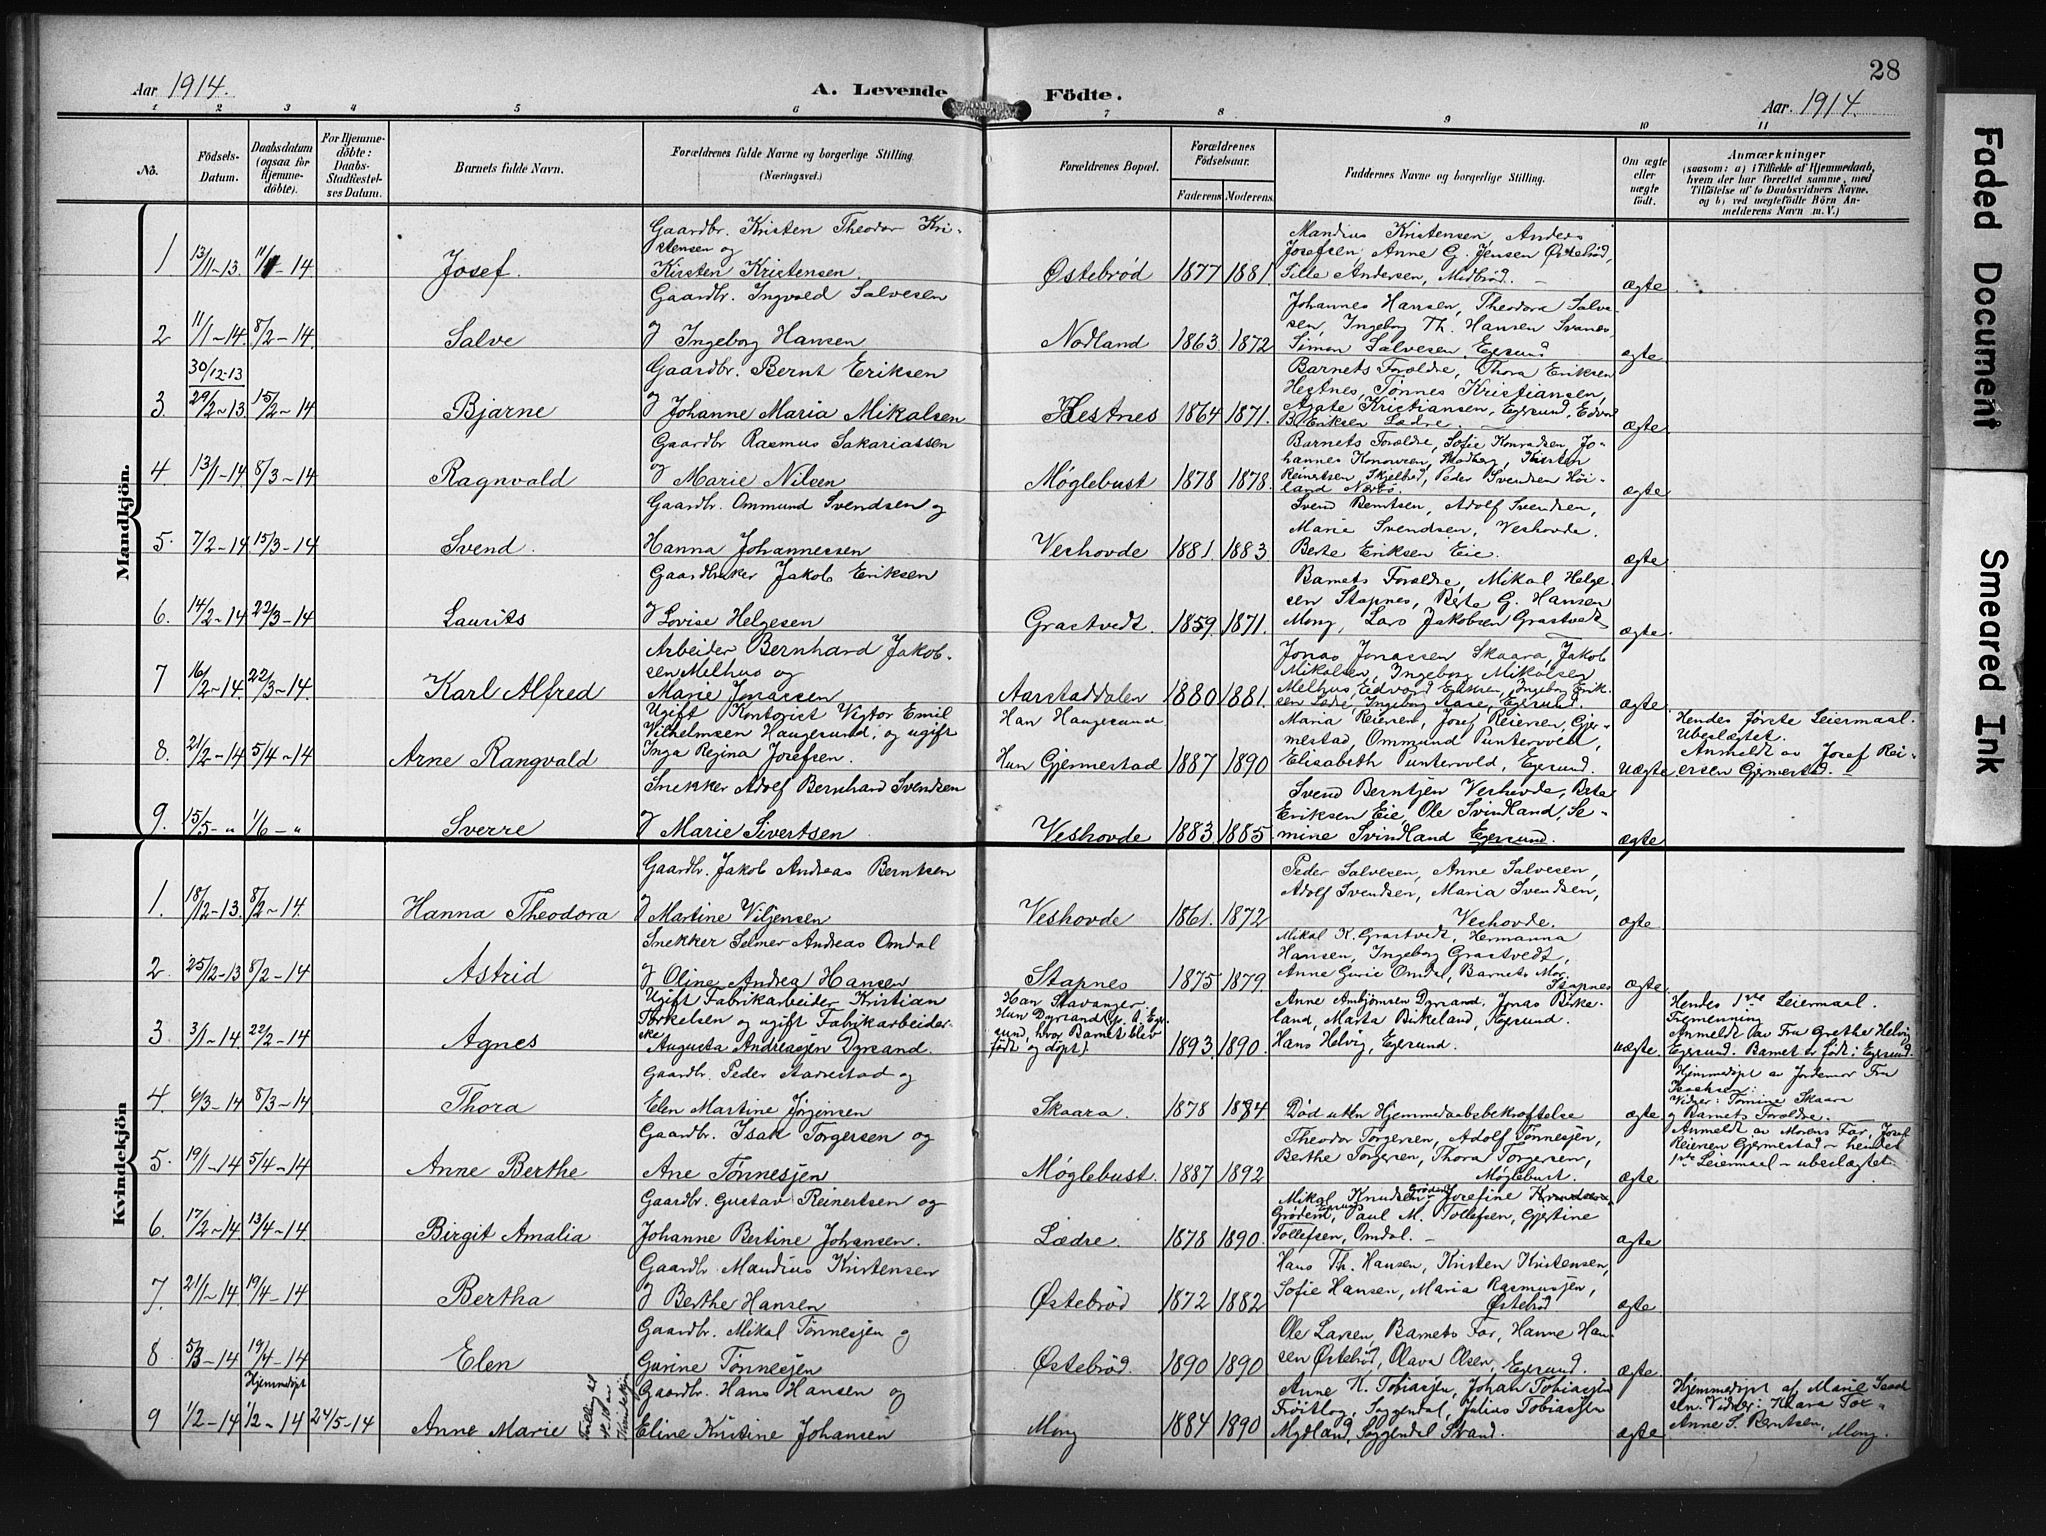 28
Aar 1914.
A. Levende Födte.
Aar. 1914.
1 2 3 4 5 6 7 8 9 10 11
No.
Födsels-Datum.
Daabsdatum (ogsaa for Hjemme-döbte).
For Hjemme-döbte: Daabs-Stadfæstel-ses Datum.
Barnets fulde Navn.
Forældrenes fulde Navne og borgerlige Stilling.
(Næringsvei.)
Forældrenes Bopæl.
Forældrenes Födselsaar.
Faderens Moderens
Faddernes Navne og borgerlige Stilling.
Om ægte eller uægte födt.
Anmærkninger
(saasom: a) i Tilfælde af Hjemmedaab, hvem der har forrettet samme, med Tilföielse af to Daabsvidners Navne, og b) ved uægtefödte Börn An-melderens Navn m. V.)
Mandkjön.
1 13/11-13. 11/1-14 Josef.
Gaardbr. Kristen Theodor Kri-
stensen og
Kirsten Kristensen.
Østebrød 1877 1881.
Mandius Kristensen, Anders
Josefsen, Anne G. Jensen Østebrød,
Sille Andersen, Midbrød.
ægte.
2 11/1-14. 8/2-14. Salve
Gaardbr. Ingvald Salvesen
og Ingeborg Hansen
Nodland 1863. 1872
Johannes Hansen, Theodora Salve-
sen, Ingeborg Th. Hansen Svanes,
Simon Salvesen, Egersund
ægte.
3. 30/12-13
29/2-13. 15/2-14 Bjarne
Gaardbr. Bernt Eriksen
og Johanne Maria Mikalsen
Hestnes 1864 1871.
Barnets Forældre, Thora Eriksen
Hestnes, Tønnes Kristiansen,
Agate Kristiansen, Egersund, Edvard
B. Eriksen Lædre.
ægte.
4. 13/1-14 8/3-14 Ragnvald
Gaardbr Rasmus Sakariassen
og Marie Nilsen
Møglebust 1878 1878.
Barnets Forældre, Sofie Konradsen, Jo-
hannes Kirsten
Reinertsen, Skjelbred, Peder Svendsen Höi-
land Nærbö.
ægte.
5. 7/2-14 15/3-14 Svend.
Gaardbr. Ommund Svendsen og
Hanna Johannessen
Veshovde 1881. 1883
Svend Berntsen, Adolf Svendsen,
Marie Svendsen, Veshovde.
Berte Eriksen Eie.
ægte
6. 14/2-14 22/3-14 Laurits
Gaardbruker Jakob Eriksen
og Lovise Helgesen
Grastvedt. 1859. 1871.
Barnets Forældre, Mikal Helge-
sen Stapnes, Berte G. Hansen
Mong, Lars Jakobsen Grastvedt
ægte.
7 16/2-14. 22/3-14. Karl Alfred
Arbeider Bernhard Jakob-
sen Melhus og
Marie Jonassen
Aarstaddalen 1880 1881.
Jonas Jonassen Skaara, Jakob
Mikalsen, Ingeborg Mikalsen
Melhus, Edvard Eriksen, Ingeborg Erik-
sen Lædre, Ingeborg Aase, Egersund.
ægte.
8. 21/2-14 5/4-14 Arne Rangvald
Ugift Kontorist Vigtor Emil
Vilhelmsen Haugesund, og ugift
Inga Regina Josefsen.
Han Haugesund
Hun Gjermestad 1887 1890
Maria Reiersen, Josef Reiersen, Gjer-
mestad, Ommund Puntervold,
Elisabeth Puntervold, Egersund.
Uægte
Hendes første Leiermaal.
Ubeslægtet.
Anmeldt av Josef Rei-
ersen Gjermestad.
9. 15/5-" 1/6-" Sverre
Snekker Adolf Bernhard Svendsen
og Marie Sivertsen.
Veshovde 1883. 1885
Svend Berntsen Veshovde, Berta
Eriksen Eie, Ole Svindland, Se-
mine Svindland Egersund.
ægte
Kvindekjön
1. 18/12-13. 8/2-14. Hanna Theodora
Gaardbr. Jakob Andreas Berntsen
og Martine Viljensen
Veshovde 1861. 1872
Peder Salvesen, Anne Salvesen,
Adolf Svendsen, Maria Svendsen,
Veshovde.
ægte.
2. 25/12-13 8/2-14 Astrid
Snekker Selmer Andreas Omdal
og Oline Andrea Hansen
Stapnes 1875 1879.
Mikal K. Grastvedt, Hermanna
Hansen, Ingeborg Grastvedt,
Anne Gurie Omdal, Barnets Mor.
Stapnes
ægte.
3. 3/1-14. 22/2-14 Agnes
Ugift Fabrikarbeider Kristian
Torkelsen og ugift Fabrikarbeider-
ske Augusta Andreasjen Dyrsand.
Han Stavanger.
Hun Dyrsand (p. t. Eger-
sund, hvor Barnet blev
født og døpt) 1893. 1890.
Anne Ambjörnsen Dyrsand, Jonas Birke-
land, Marta Birkeland, Egersund.
Hans Helvig, Egersund.
uægte
Hendes 1ste Leiermaal.
Tremenning
Anmeldt av Fru Grethe Helvig
Egersund. Barnet er født i Egersund.
4. 6/3-14 8/3-14 Thora
Gaardbr. Peder Aarrestad og
Elen Martine Jörgensen
Skaara. 1878 1884
Död uten Hjemmedaabsbekræftelse
ægte
Hjemmedöpt av Jordemor Fru
Isachsen.
Vidner: Tomine Skaara
og Barnets Forældre.
5. 19/1-14 5/4-14 Anne Berthe
Gaardbr. Isak Torgersen og
Ane Tønnesjen
Møglebust. 1887 1892
Theodor Torgersen, Adolf Tønnesjen,
Berthe Torgersen, Thora Torgersen,
Møglebust.
ægte
Anmeldt av Morens Far, Josef
Reiersen Gjermestad - hendes
1ste Leiermaal - ubeslægtet.
6. 17/2-14 13/4-14 Birgit Amalia
Gaardbr. Gustav Reinertsen og
Johanne Bertine Johansen.
Lædre. 1878 1890.
Mikal Knudsen, Josefine Knudsen
Grödem, Paul M. Tollefsen, Gjertine
Tollefsen, Omdal.
ægte
7. 21/1-14 19/4-14 Bertha
Gaardbr. Mandius Kristensen
og Berthe Hansen
Østebrød 1872 1882
Hans Th. Hansen, Kristen Kristensen,
Sofie Hansen, Maria Rasmusjen,
Østebrød
ægte
8 5/3-14 19/4-14 Elen
Gaardbr. Mikal Tønnesjen og
Gurine Tønnesjen
Østebrød. 1890 1890
Ole Larsen, Barnets Far, Hanne Han-
sen Østebrød, Olava Olsen, Egersund.
ægte.
9 1/2-14 Hjemmedöpt 1/2-14 24/5-14 Anne Marie
Gaardbr. Hans Hansen og
Eline Kristine Johansen
Mong 1884 1890
Anne K. Tobiasjen, Johan Tobiasjen
Frøitlog, Soggendal, Julius Tobiasjen
Mydland, Soggendal Strand.
ægte
Hjemmedöpt af Marie Isach-
sen. Vidner: Klara
Anne S. Berntsen, Mong.
Faded Document
Smeared Ink